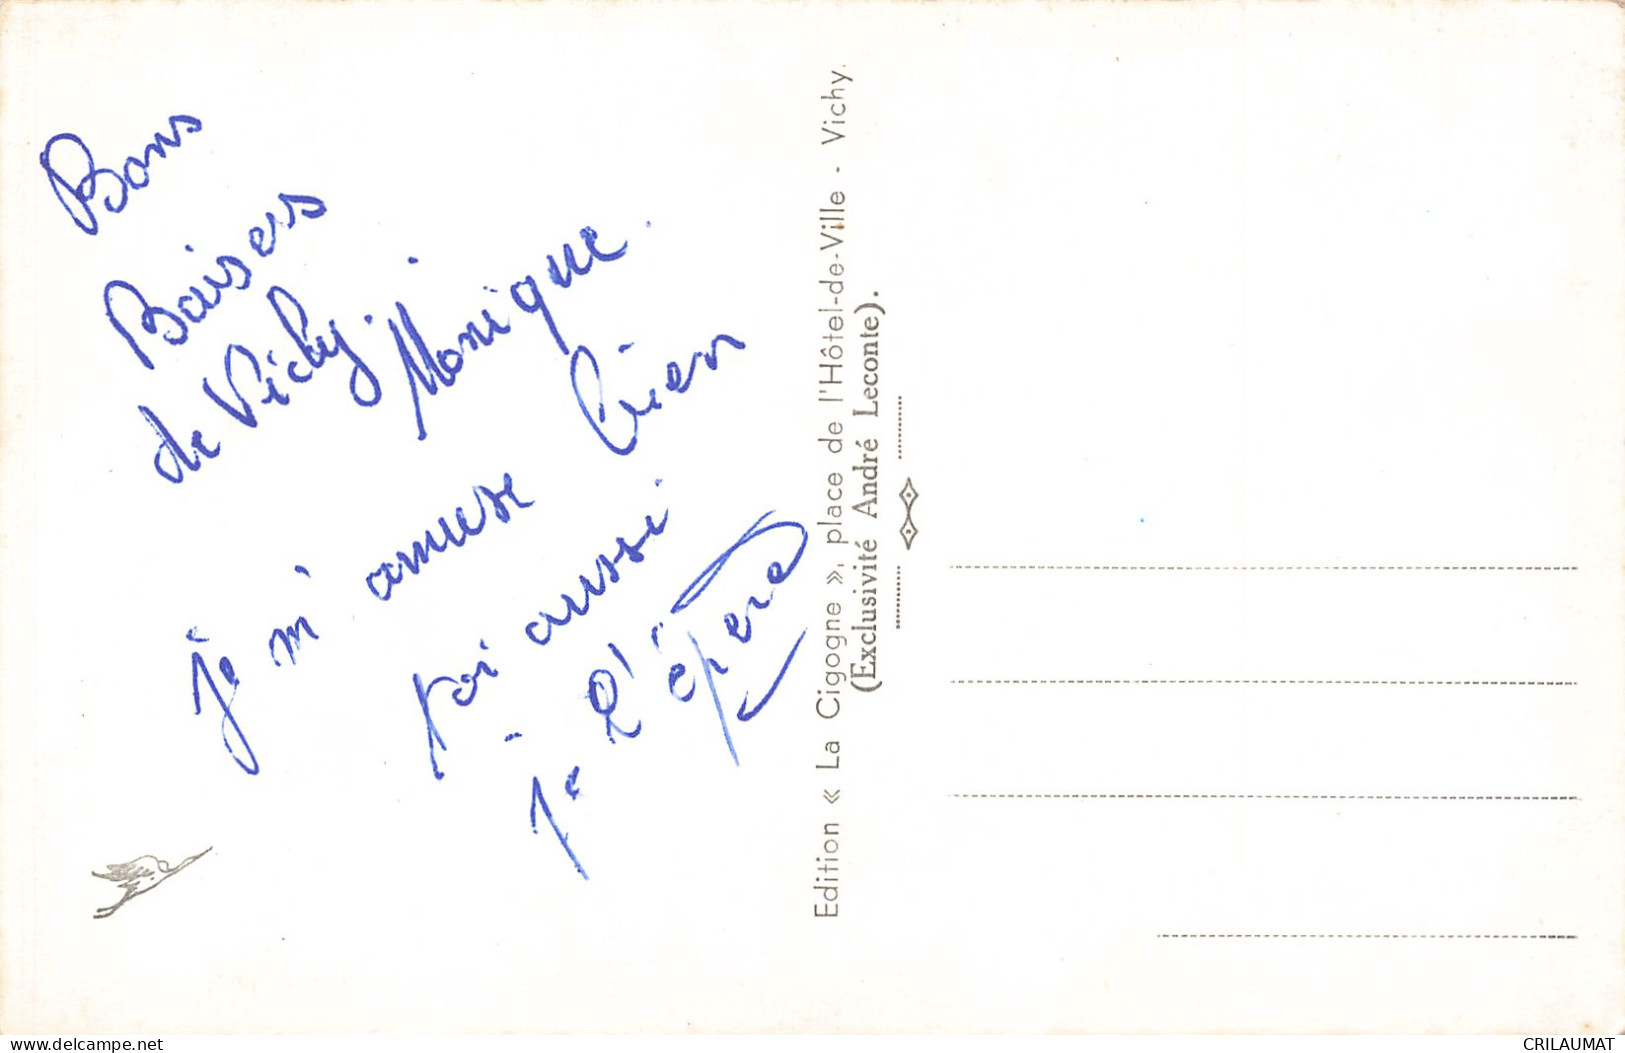 Bons
Baisers
de Vichy. Monique.
je m'amuse bien
toi aussi
je l'éspere
Edition « La Cigogne », place de l'Hôtel-de-Ville - Vichy.
(Exclusivité André Leconte).
www.delcampe.net
CRILAUMAT